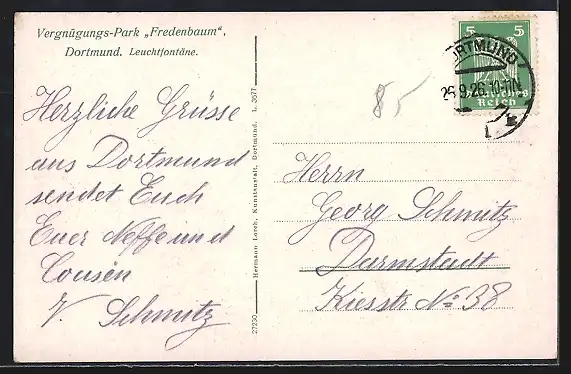 Vergnügungs-Park „Fredenbaum“,
Dortmund. Leuchtfontäne.
Herzliche Grüsse
aus Dortmund
sendet Euch
Euer Neffe und
Cousin
Schmitz
27230 Hermann Lorch, Kunstanstalt, Dortmund. L. 3677
85
5 5
Deutsches
Reich
DORTMUND
26.9.26. 10-11N
Herrn
Georg Schmitz
Darmstadt
Kiesstr No 38